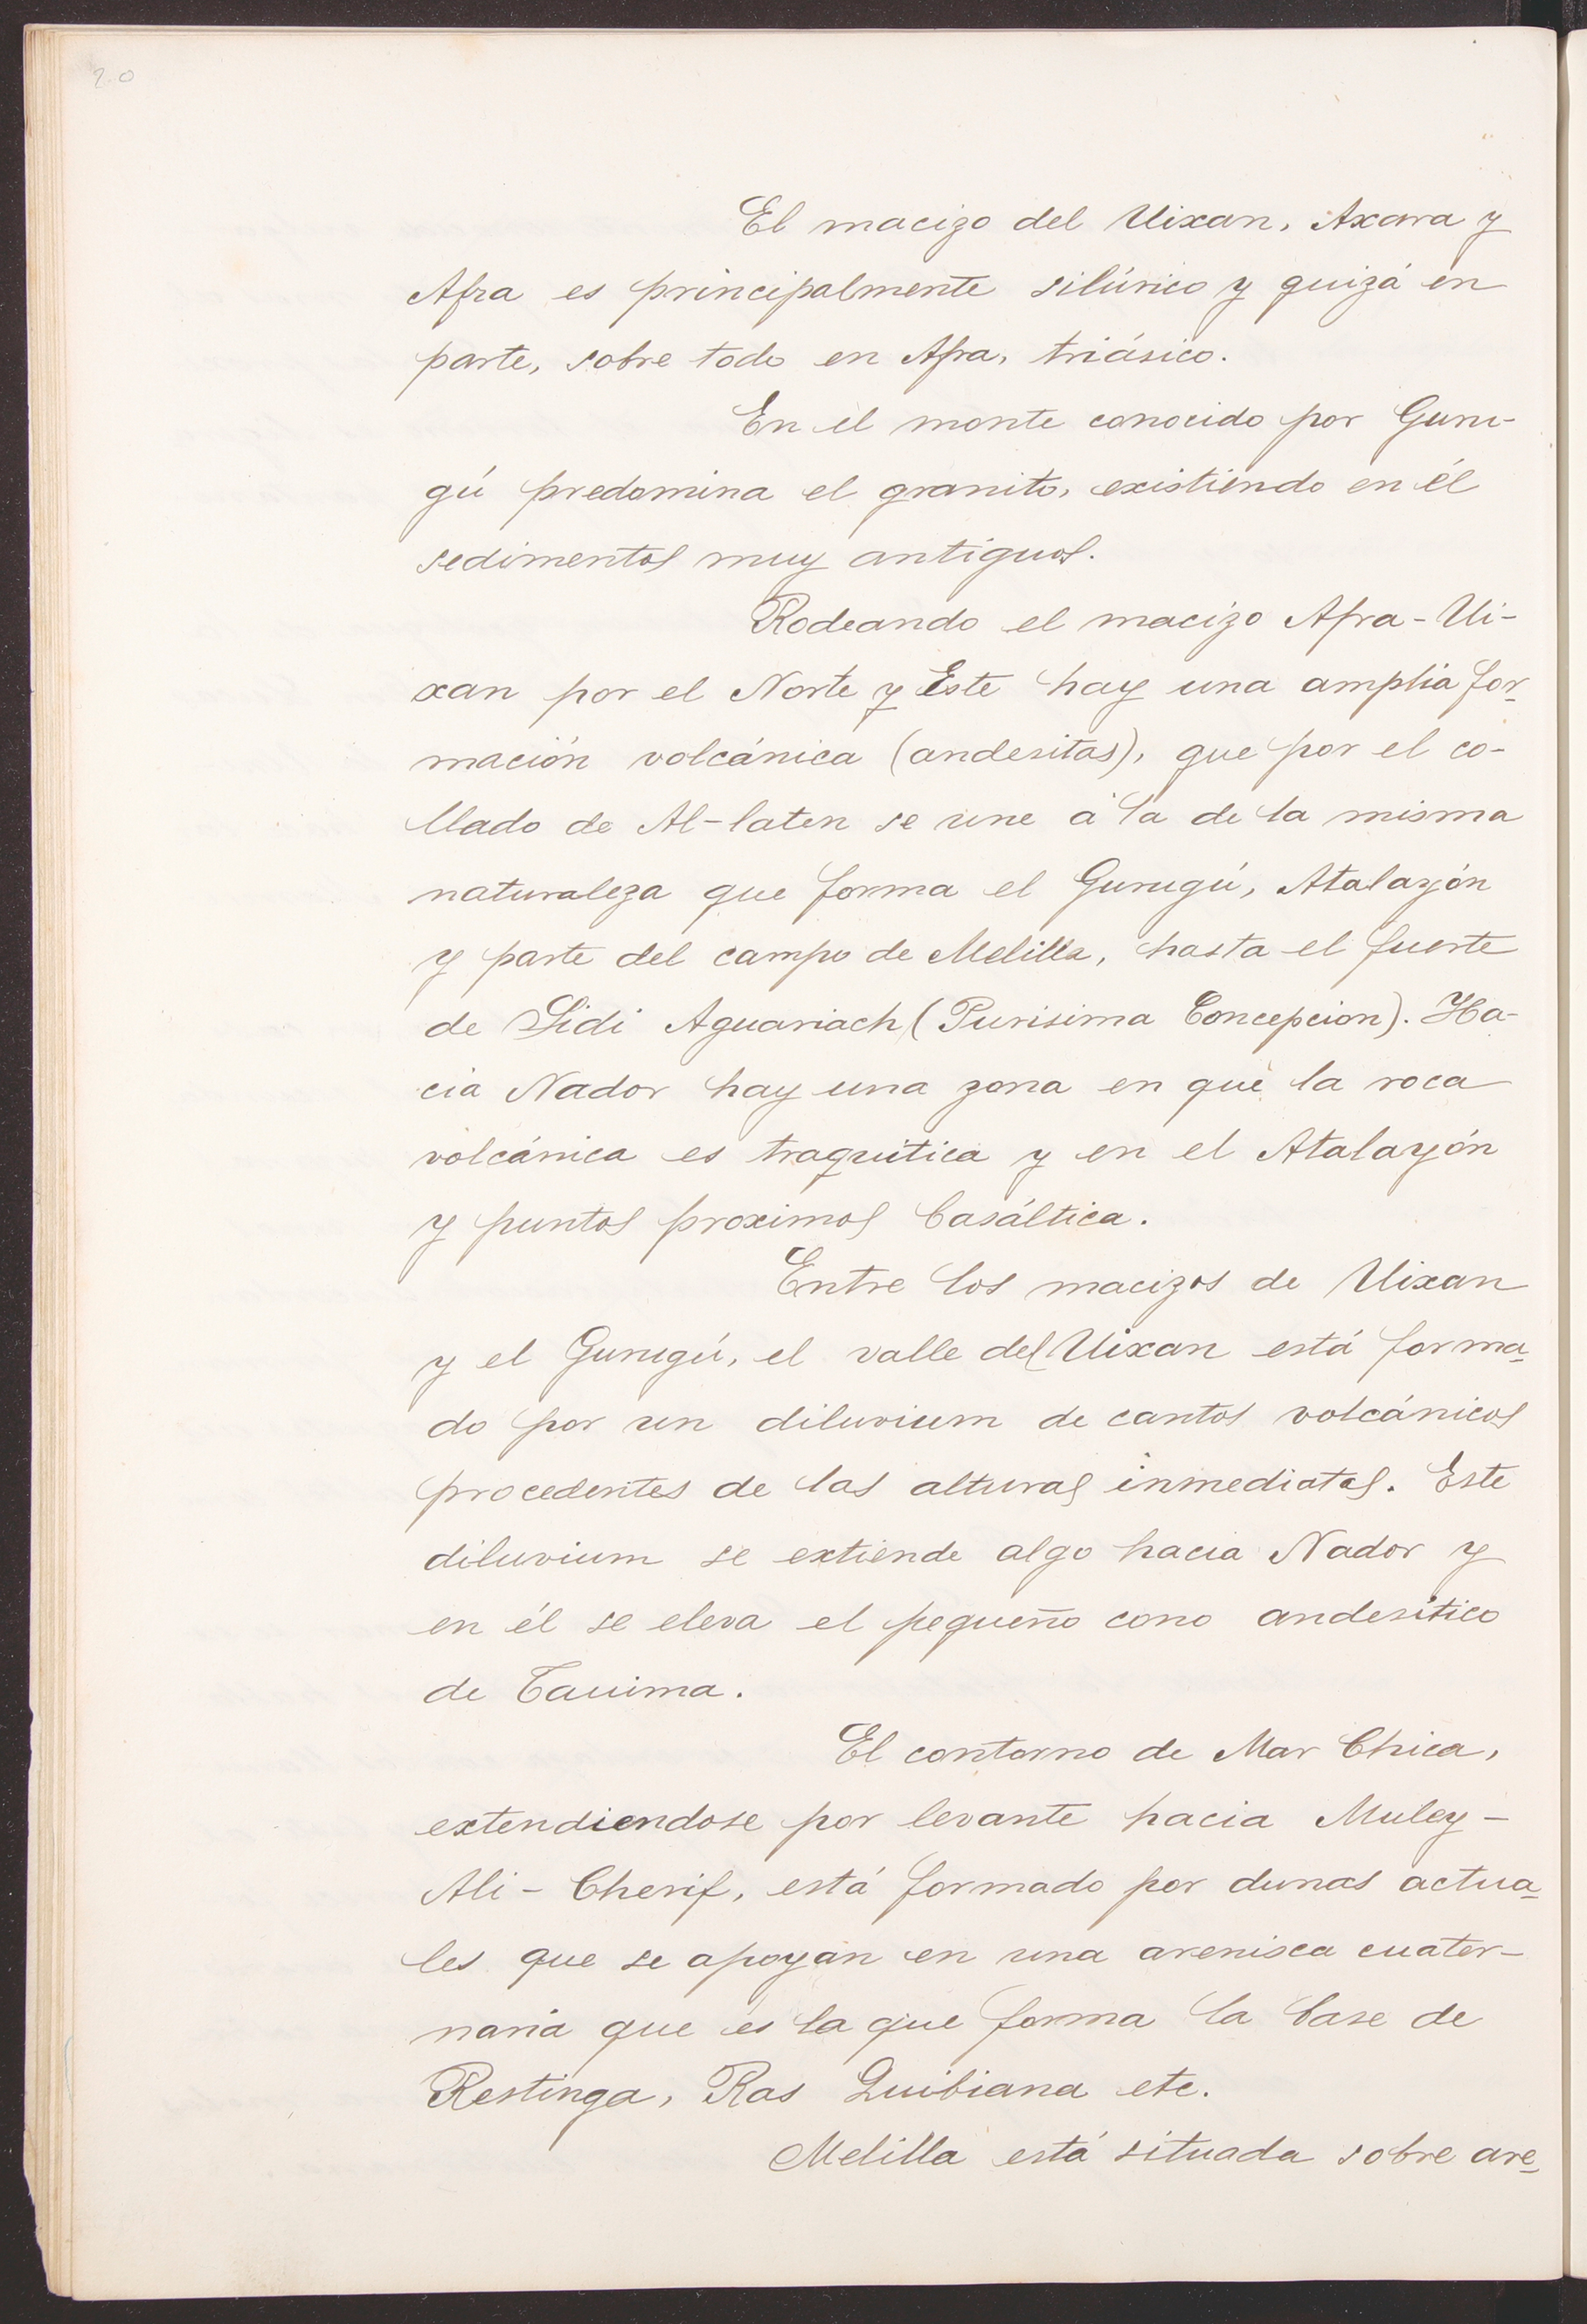 20
El macizo del Uixan, Axara y
Afra es principalmente silúrico y quizá en
parte, sobre todo en Afra, triásico.
En el monte conocido por Guru-
gú predomina el granito, existiendo en él
sedimentos muy antiguos.
Rodeando el macizo Afra-Ui-
xan por el Norte y Este hay una amplia for-
mación volcánica (andesitas), que por el co-
llado de Al-laten se une á la de la misma
naturaleza que forma el Gurugú, Atalayón
y parte del campo de Melilla, hasta el fuerte
de Sidi Aguariach (Purisima Concepcion). Ha-
cia Nador hay una zona en que la roca
volcánica es traquitica y en el Atalayón
y puntos proximos basáltica.
Entre los macizos de Uixan
y el Gurugú, el valle del Uixan está forma-
do por un diluvium de cantos volcánicos
procedentes de las alturas inmediatas. Este
diluvium se extiende algo hacia Nador y
en él se eleva el pequeño cono andesitico
de Tauima.
El contorno de Mar Chica,
extendiendose por levante hacia Muley-
Ali-Cherif, está formado por dunas actua-
les que se apoyan en una arenisca cuater-
naria que es la que forma la base de
Restinga, Ras Quibiana etc.
Melilla está situada sobre are-